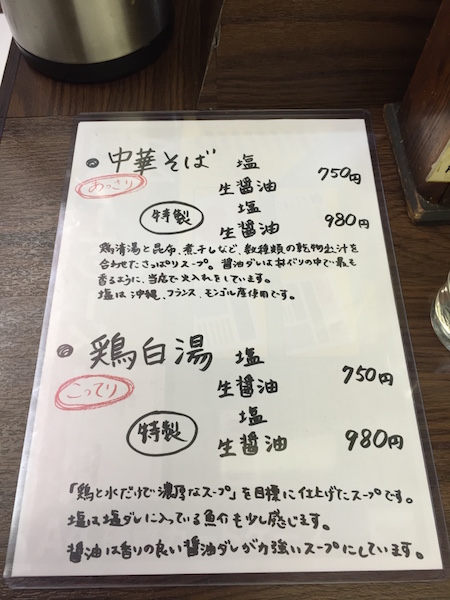 中華そば 塩 750円
あっさり 生醤油
特製 塩 980円
生醤油
鶏清湯と昆布、煮干しなど、数種類の乾物出汁を
合わせたさっぱりスープ。醤油ダレは丼作りの中で最も
香るように、当店で火入れをしています。
塩は沖縄、フランス、モンゴル産使用です。
鶏白湯 塩 750円
こってり 生醤油
特製 塩 980円
生醤油
「鶏と水だけで濃厚なスープ」を目標に仕上げたスープです。
塩は塩ダレに入っている魚介も少し感じます。
醤油は香りの良い醤油ダレが力強いスープにしています。